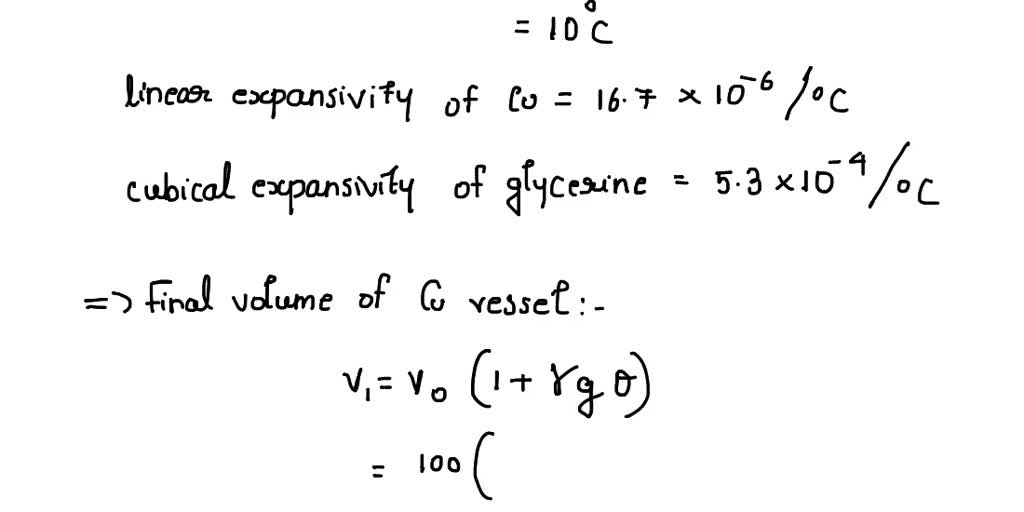 = 10°C
linear expansivity of Cu = 16.7 × 10⁻⁶ /°C
cubical expansivity of glycerine = 5.3 × 10⁻⁴ /°C
=> Final volume of Cu vessel :-
V₁ = V₀ (1 + γg θ)
= 100 (